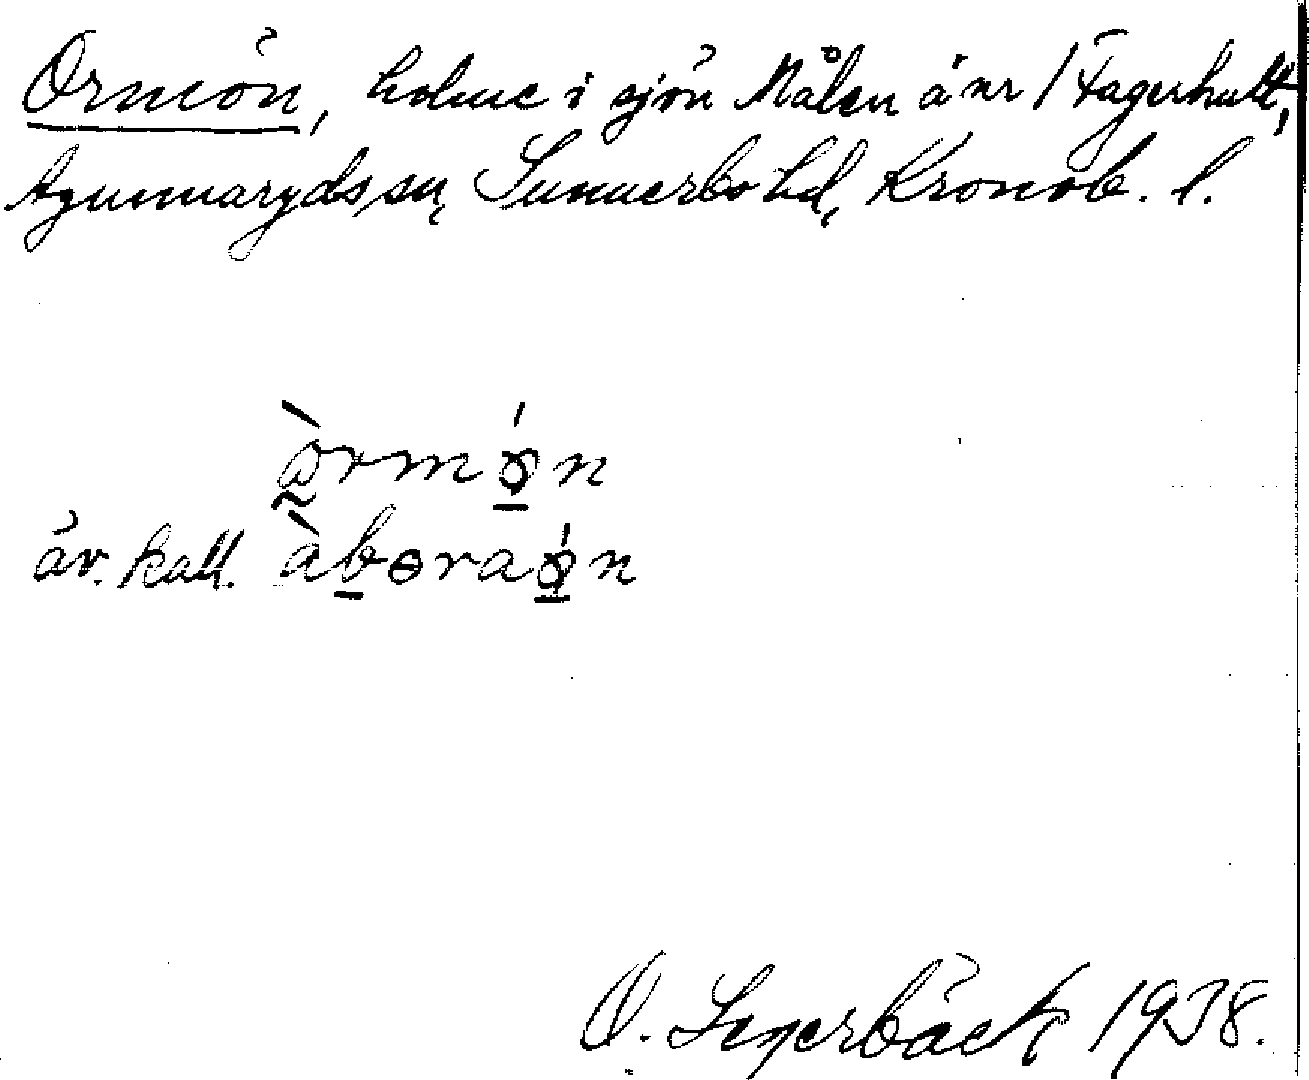 Ormön, holme i sjön Målen ä nr 1 Fagerhult,
Agunnarydssn, Sunnerbo hd, Kronob. l.
òrmǿn
äv. kall. àbɵraǿn
O. 1938.